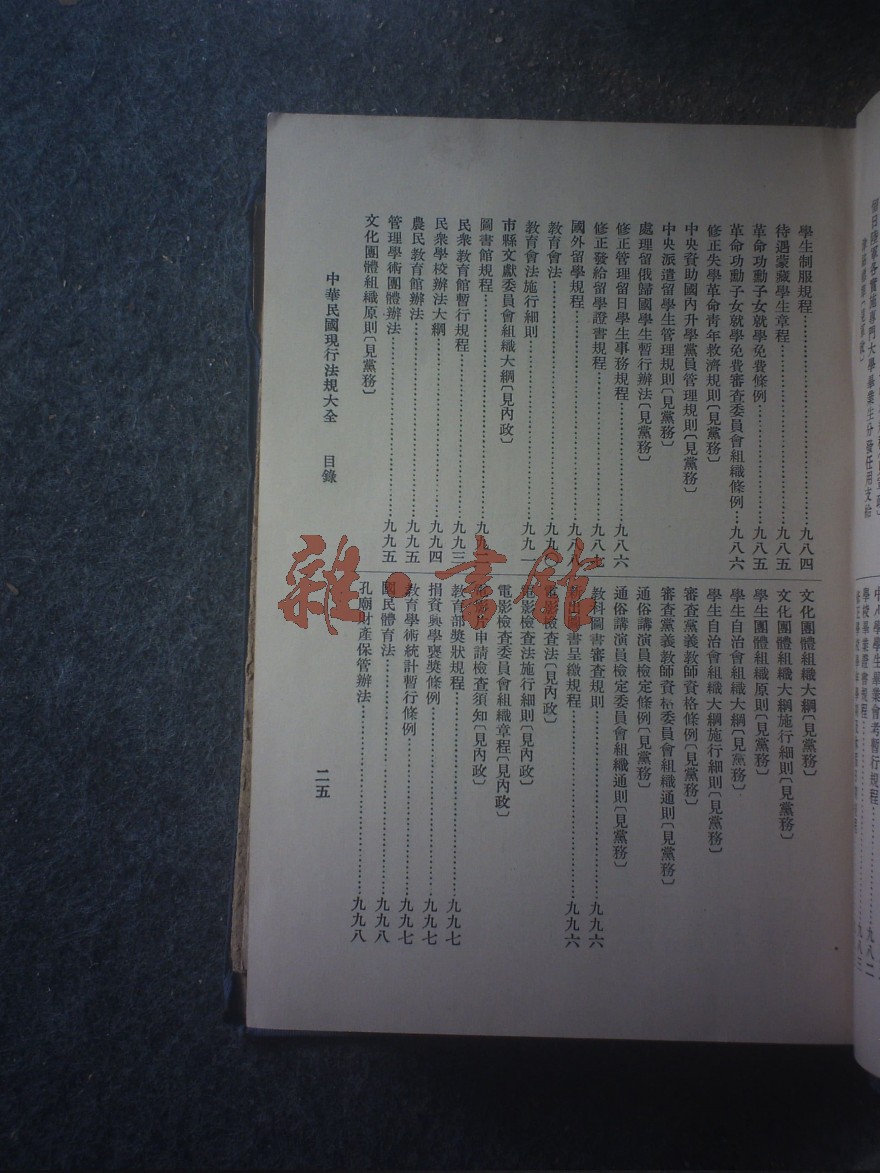 學生制服規程……九八四
待遇蒙藏學生章程……九八五
革命功勳子女就學免費條例……九八五
革命功勳子女就學免費審查委員會組織條例……九八六
修正失學革命青年救濟規則〔見黨務〕
中央資助國內升學黨員管理規則〔見黨務〕
中央派遣留學生管理規則〔見黨務〕
處理留俄歸國學生暫行辦法〔見黨務〕
修正管理留日學生事務規程……九八六
修正發給留學證書規程……九八七
國外留學規程……九八八
教育會法……九九
教育會法施行細則……九九一
市縣文獻委員會組織大綱〔見內政〕
圖書館規程……九九
民衆教育館暫行規程……九九三
民衆學校辦法大綱……九九四
農民教育館辦法……九九五
管理學術團體辦法……九九五
文化團體組織原則〔見黨務〕
文化團體組織大綱〔見黨務〕
文化團體組織大綱施行細則〔見黨務〕
學生團體組織原則〔見黨務〕
學生自治會組織大綱〔見黨務〕
學生自治會組織大綱施行細則〔見黨務〕
審查黨義教師資格條例〔見黨務〕
審查黨義教師資格委員會組織通則〔見黨務〕
通俗講演員檢定條例〔見黨務〕
通俗講演員檢定委員會組織通則〔見黨務〕
教科圖書審查規則……九九六
圖書呈繳規程……九九六
電影檢查法〔見內政〕
電影檢查法施行細則〔見內政〕
電影檢查委員會組織章程〔見內政〕
電影片申請檢查須知〔見內政〕
教育部獎狀規程……九九七
捐資興學褒獎條例……九九七
教育學術統計暫行條例……九九七
國民體育法……九九八
孔廟財產保管辦法……九九八
中華民國現行法規大全 目錄 二五
雜·書館